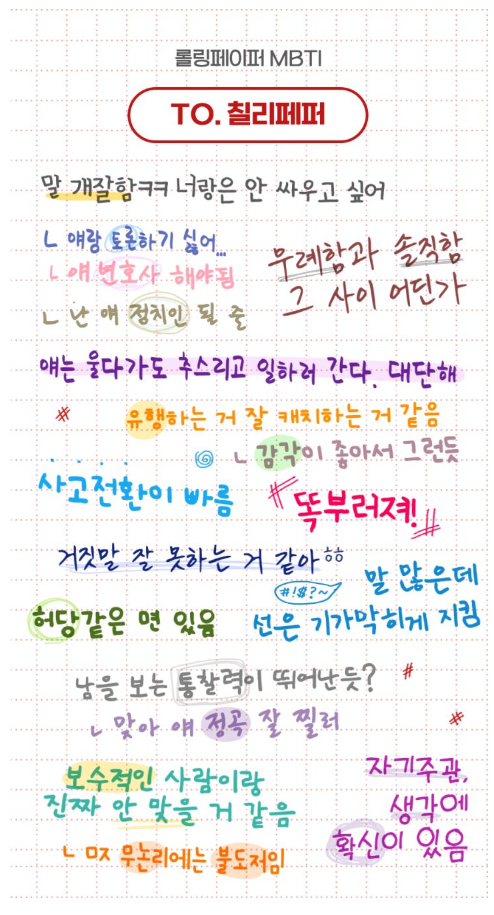 롤링페이퍼 MBTI
TO. 칠리페퍼
말 개잘함ㅋㅋ 너랑은 안 싸우고 싶어
ㄴ 얘랑 토론하기 싫어...
ㄴ 얘 변호사 해야됨
ㄴ 난 얘 정치인 될 줄
무례함과 솔직함
그 사이 어딘가
얘는 울다가도 추스리고 일하러 간다. 대단해
유행하는 거 잘 캐치하는 거 같음
ㄴ 감각이 좋아서 그런듯
사고전환이 빠름
똑부러져!
거짓말 잘 못하는 거 같아ㅎㅎ
#!$?~
말 많은데
선은 기가막히게 지킴
허당같은 면 있음
남을 보는 통찰력이 뛰어난듯?
ㄴ 맞아 얘 정곡 잘 찔러
보수적인 사람이랑
진짜 안 맞을 거 같음
ㄴ ㅁㅈ 무논리에는 불도저임
자기주관,
생각에
확신이 있음